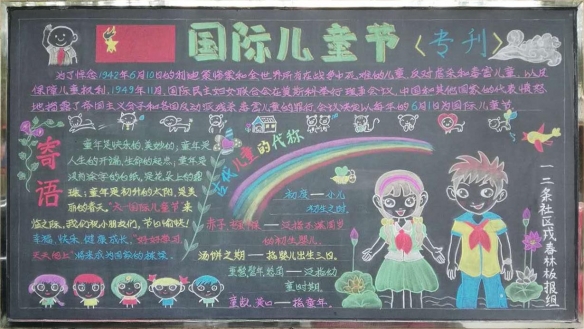 国际儿童节
〈专刊〉
为了悼念1942年6月10日的利迪策惨案和全世界所有在战争中死难的儿童,反对虐杀和毒害儿童,以及
保障儿童权利,1949年11月,国际民主妇女联合会在莫斯科举行理事会议,中国和其他国家的代表愤怒
地揭露了帝国主义分子和各国反动派残杀毒害儿童的罪行,会议决定以每年的6月1日为国际儿童节
寄语
童年是快乐的、美妙的;童年是
人生的开端,生命的起点;童年是
童年是初升的太阳,是美
丽的春天。"六一"国际儿童节来
临之际,我们祝小朋友们,节日愉快!
幸福、快乐、健康成长,"好好学习,
天天向上"
儿童的代称
初度——小儿
初生之时
赤子
——泛指未满周
岁
汤饼之期——指婴儿出生三日
——泛指幼
童时期
——指童年
一二条社区戎春林板报组